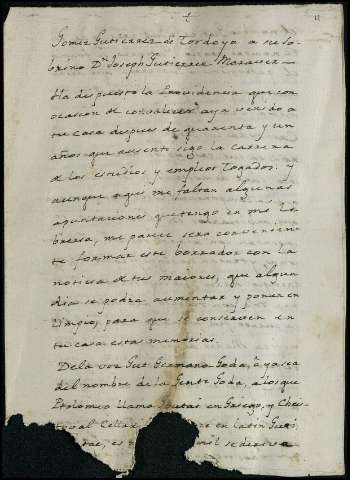 +
11
Gomez Gutierrez de Tordoya a su so-
brino Dn Joseph Gutierrez Maraver
Ha dispuesto la Providencia que con
ocasion de convalecer aya venido a
tu casa despues de quarenta y un
años que ausente sigo la carrera
de los estudios y empleos Togados. y
aunque aqui me faltan algunas
apuntaciones que tengo en mi li-
breria, me parece sera convenien
te formar este borrador con la
noticia de tus maiores, que algun
dia se podra aumentar y poner en
limpio, para que se conserven en
tu casa estas memorias.
De la voz Gut Germana Goda, o ya sea
del nombre de la Gente Goda, a los que
Ptolomeo llama Goutai en Griego, y
en latin
es se deriva